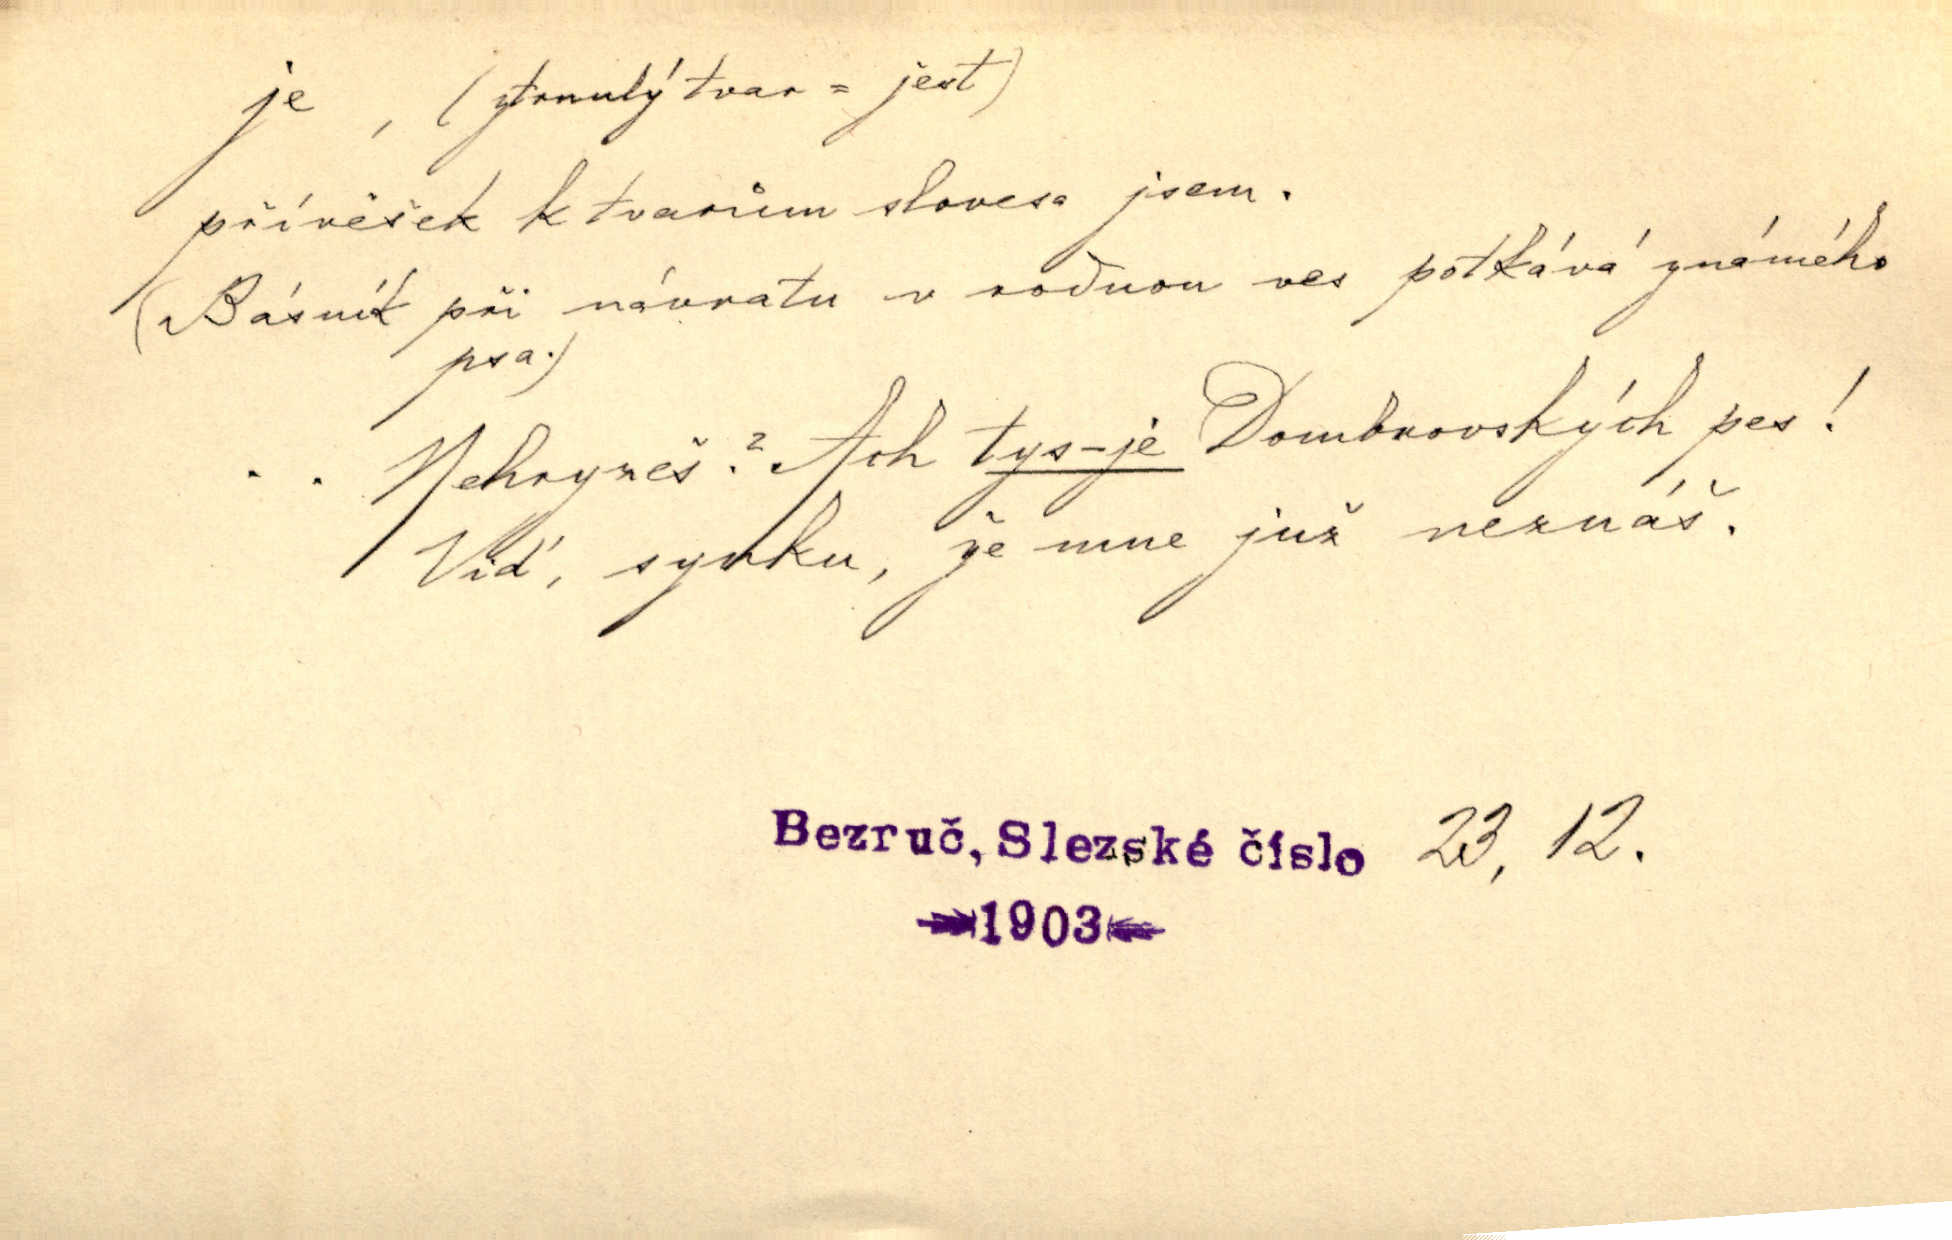 je , (ztrnulý tvar = jest)
přívěšek k tvarům slovesa jsem.
(Básník při návratu v rodnou ves potkává známého
psa.)
. . Nehryzeš? Ach tys-je Dombrovských pes!
Viď, synku, že mne již neznáš.
Bezruč, Slezské číslo 23, 12.
1903